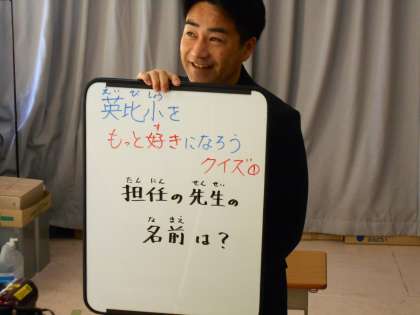 えびしょう
英比小を
す
もっと好きになろう
クイズ①
たんにん せんせい
担任の先生の
なまえ
名前は？